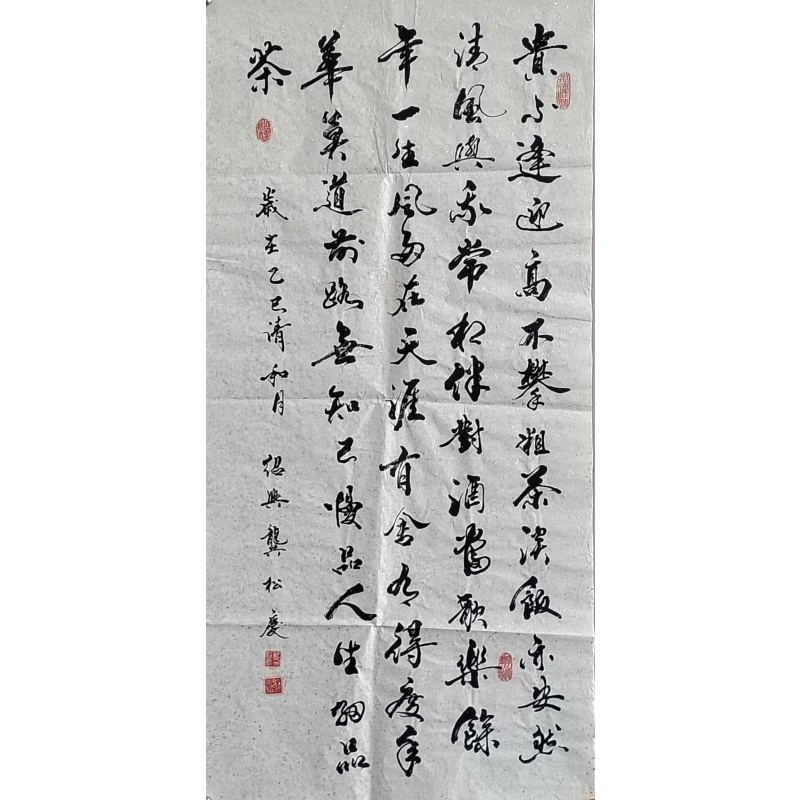 貴亦逢迎高不攀粗茶淡飯亦安然
清風與我常相伴對酒當歌樂餘
年一生風雨在天涯有舍有得度年
華莫道前路無知己慢品人生細品
茶
歲在乙巳清和月 紹興龔松慶